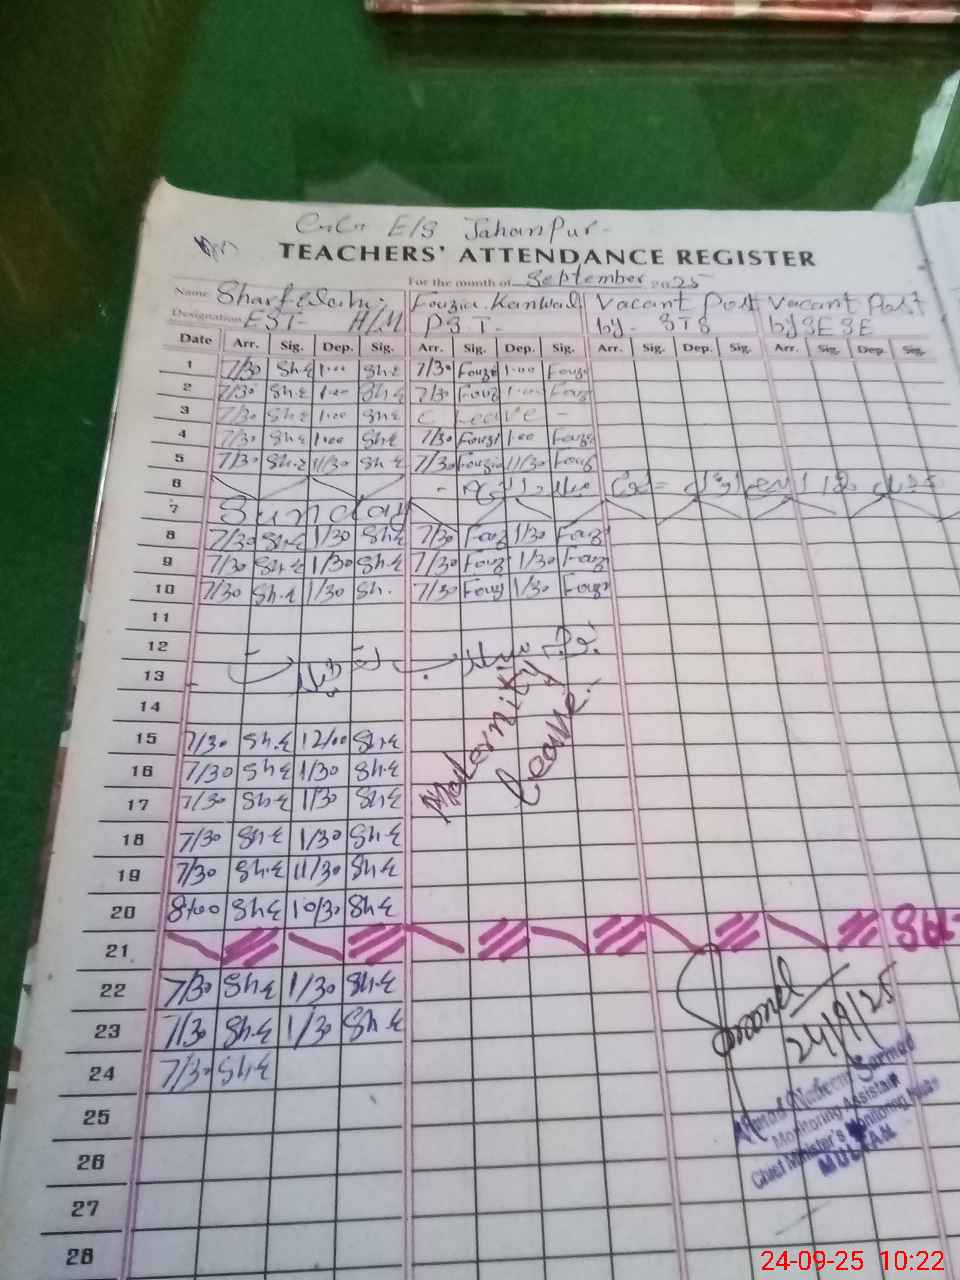 E/S Jahanpur-
TEACHERS' ATTENDANCE REGISTER
For the month of September 2025
Name Fouzia Kanwal Vacant Post Vacant Post
Designation EST- H/M P.S.T- by- STS by SESE
Date Arr. Sig. Dep. Sig. Arr. Sig. Dep. Sig. Arr. Sig. Dep. Sig. Arr. Sig. Dep. Sig.
1 7/30 Sh.ع 1.00 Sh.ع 7/30 Fouz 1.00 Fouz
2 7/30 Sh.ع 1.00 Sh.ع 7/30 Fouz 1.00 Fouz
3 7/30 Sh.ع 1.00 Sh.ع C Leave -
4 7/30 Sh.ع 1.00 Sh.ع 7/30 Fouz 1.00 Fouz
5 7/30 Sh.ع 11/30 Sh.ع 7/30 Fouzia 11/30 Fouz
6
7 Sunday
8 7/30 Sh.ع 1/30 Sh.ع 7/30 Fouz 1/30 Fouz
9 7/30 Sh.ع 1/30 Sh.ع 7/30 Fouz 1/30 Fouz
10 7/30 Sh.ع 1/30 Sh. 7/30 Fouz 1/30 Fouz
11
12
13
14
Maternity
Leave.
15 7/30 Sh.ع 12/00 Sh.ع
16 7/30 Sh.ع 1/30 Sh.ع
17 7/30 Sh.ع 1/30 Sh.ع
18 7/30 Sh.ع 1/30 Sh.ع
19 7/30 Sh.ع 11/30 Sh.ع
20 8/00 Sh.ع 10/30 Sh.ع
21
22 7/30 Sh.ع 1/30 Sh.ع
23 7/30 Sh.ع 1/30 Sh.ع
24 7/30 Sh.ع
24/9/25
Ahmad Nadeem Sarmad
Monitoring Assistant
Chief Minister's Monitoring Force
MULTAN
25
26
27
28
24-09-25 10:22